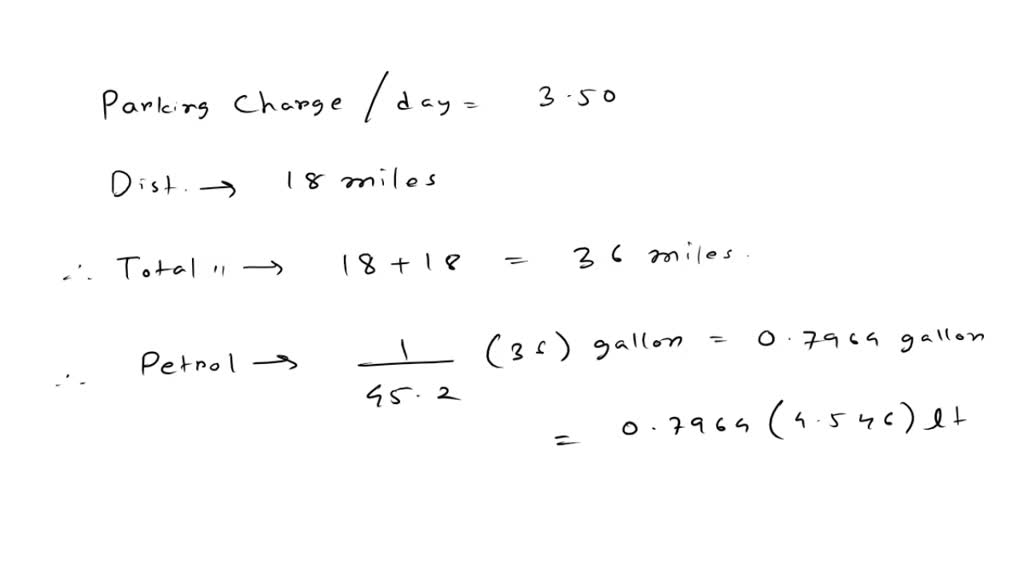 Parking Charge / day = 3.50
Dist. → 18 miles
∴ Total " → 18 + 18 = 36 miles.
∴ Petrol → 1/45.2 (36) gallon = 0.7964 gallon
= 0.7964 (4.546) lt